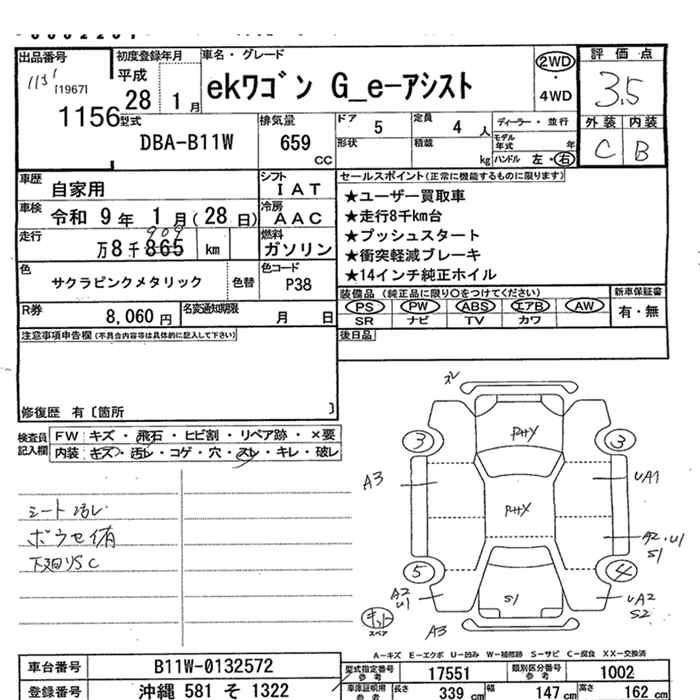 出品番号
[1967]
1156
初度登録年月
平成
28 1月
車名・グレード
ekワゴン G_e-アシスト
2WD
・
4WD
評価点
3.5
外装 内装
C B
型式
DBA-B11W
排気量
659
CC
ドア
5
定員
4 人
形状
積載
kg
ディーラー・並行
モデル
年式 年
ハンドル 左・右
車歴
自家用
シフト
IAT
車検
令和 9年 1月(28日)
冷房
AAC
走行
909
万8千865 km
燃料
ガソリン
色
サクラピンクメタリック
色替
色コード
P38
R券
8,060円
名変通知期限
月 日
セールスポイント(正常に機能するものに限ります)
★ユーザー買取車
★走行8千km台
★プッシュスタート
★衝突軽減ブレーキ
★14インチ純正ホイル
装備品(純正品に限り○をつけてください)
PS PW ABS エアB AW
SR ナビ TV カワ
新車保証書
有・無
後日品
注意事項申告欄(不具合内容等は具体的に記入して下さい)
修復歴 有〔箇所 〕
検査員
記入欄
FW: キズ・飛石・ヒビ割・リペア跡・×要
内装: キズ・汚レ・コゲ・穴・スレ・キレ・破レ
シート汚レ
下廻りSC
ズレ
3 3
PHY
A3
UA1
PHX
A2・U1
S1
5 4
A2
U1
S1
UA2
S2
キット
スペア
A3
A-キズ E-エクボ U-凹み W-補修跡 S-サビ C-腐食 XX-交換済
車台番号
B11W-0132572
登録番号
沖縄 581 そ 1322
型式指定番号
参考
17551
類別区分番号
参考
1002
車庫証明用
参考
長さ
339 cm
幅
147 cm
高さ
162 cm